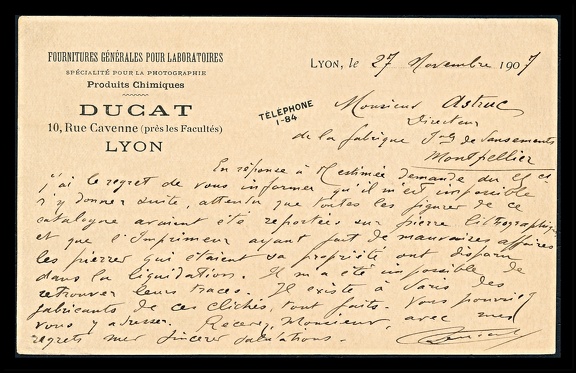 FOURNITURES GÉNÉRALES POUR LABORATOIRES
SPÉCIALITÉ POUR LA PHOTOGRAPHIE
Produits Chimiques
DUCAT
10, Rue Cavenne (près les Facultés)
LYON
TÉLÉPHONE
1-84
LYON, le 27 Novembre 1907
Monsieur Astruc
Directeur
de la fabrique de Pansements
Montpellier
En réponse à estimée demande du ct
j'ai le regret de vous informer qu'il m'est impossible
d'y donner suite, attendu que toutes les figures de ce
catalogue avaient été reportées sur pierre lithographique
et que l'Imprimeur ayant fait de mauvaises affaires
les pierres qui étaient sa propriété ont disparu
dans la liquidation. Il m'a été impossible de
retrouver leurs traces. Il existe à Paris des
fabricants de ces clichés, tout faits. Vous pourriez
vous y adresser. Recevez, Monsieur, avec mes
regrets mes sincères salutations.